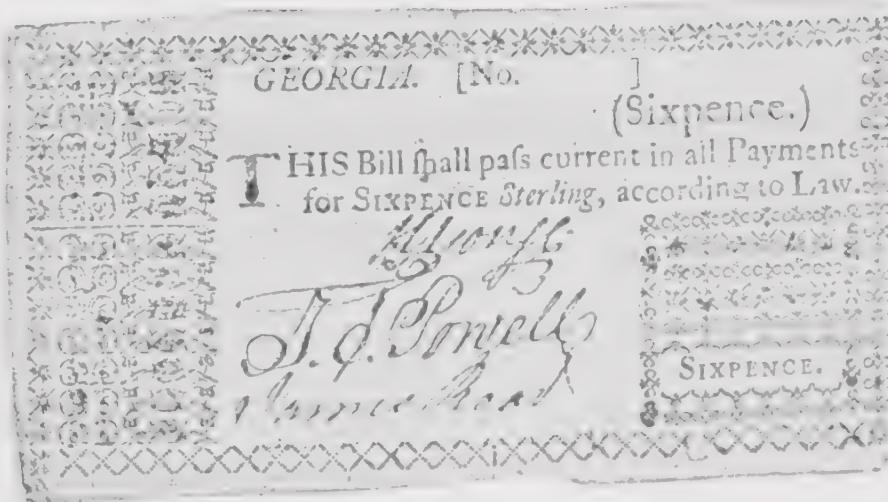 GEORGIA. [No. ]
(Sixpence.)
THIS Bill ſhall paſs current in all Payments
for SIXPENCE Sterling, according to Law.
J. S. Powell
SIXPENCE.